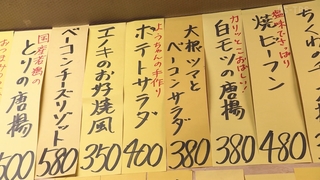 ちくわの
塩味でさっぱり
焼ビーフン
480
カリッとこおばしい!
白モツの唐揚
380
大根ツマと
ベーコンサラダ
380
ようちゃんの手作り
ポテトサラダ
400
エノキのお好焼風
350
ベーコンチーズリゾット
580
国産若鶏の
とりの唐揚
500